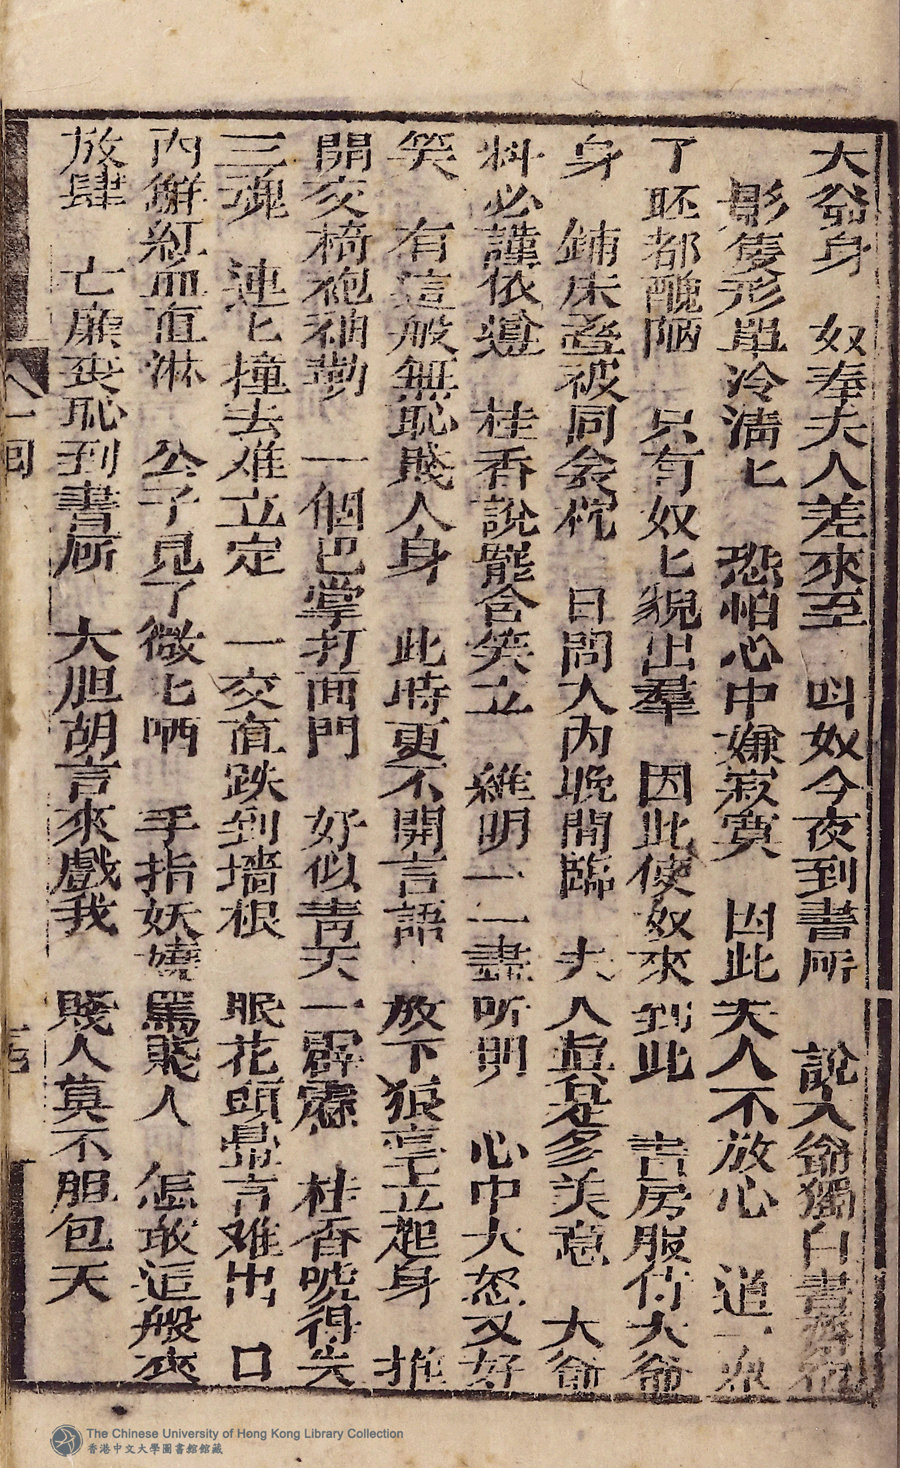 大爺身　奴奉夫人差來至　叫奴今夜到書所　說大爺獨自書齋宿
影隻形單冷淸匕　恐怕心中嫌寂寞　因此夫人不放心　道
了胚都醜陋　只有奴匕貌出羣　因此使奴來到此　書房服侍大爺
身　鋪床疊被同衾枕　日間入內晚間臨　夫人眞是多美意　大爺
料必謹依遵　桂香說罷含笑立　維明一一盡听明　心中大怒又好
笑　有這般無恥賤人身　此時更不開言語　放下狼毫立起身　推
開交椅袍袖動　一個巴掌打面門　好似靑天一霹靂　桂香唬得失
三魂　連匕撞去难立定　一交直跌到墻根　眼花頭暈言难出　口
內鮮紅血直淋　公子見了微匕哂　手指妖嬈罵賤人　怎敢這般來
放肆　亡廉丧恥到書所　大胆胡言來戲我　賤人莫不胆包天
一回
The Chinese University of Hong Kong Library Collection
香港中文大學圖書館館藏